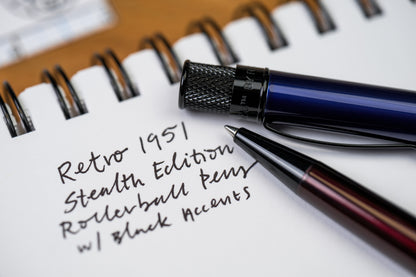 Retro 1951
Stealth Edition
Rollerball Pens
w/ Black Accents